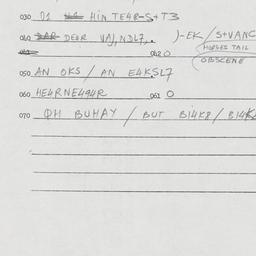 030 D1 HINTE4R-S+T3
040 DE4R VAJ,NDL7,. )-EK / S+VANC
HORSES TAIL
062 0
OBSCENE
050 AN OKS / AN E4KSL7
060 HE4RNE494R 061 0
070 ØH BUHAY / BUT BI4K8 / BI4K